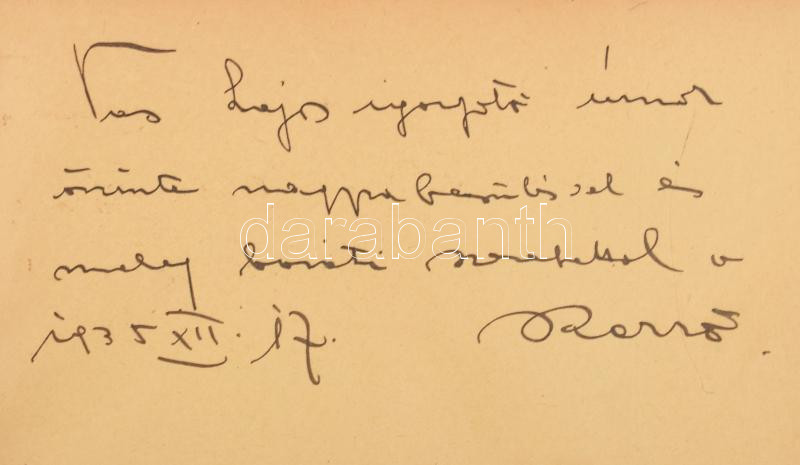 Vas Lajos igazgató úrnak
őszinte nagyrabecsüléssel és
meleg baráti szeretettel a
1935 XII. 17. Szerző.
darabanth